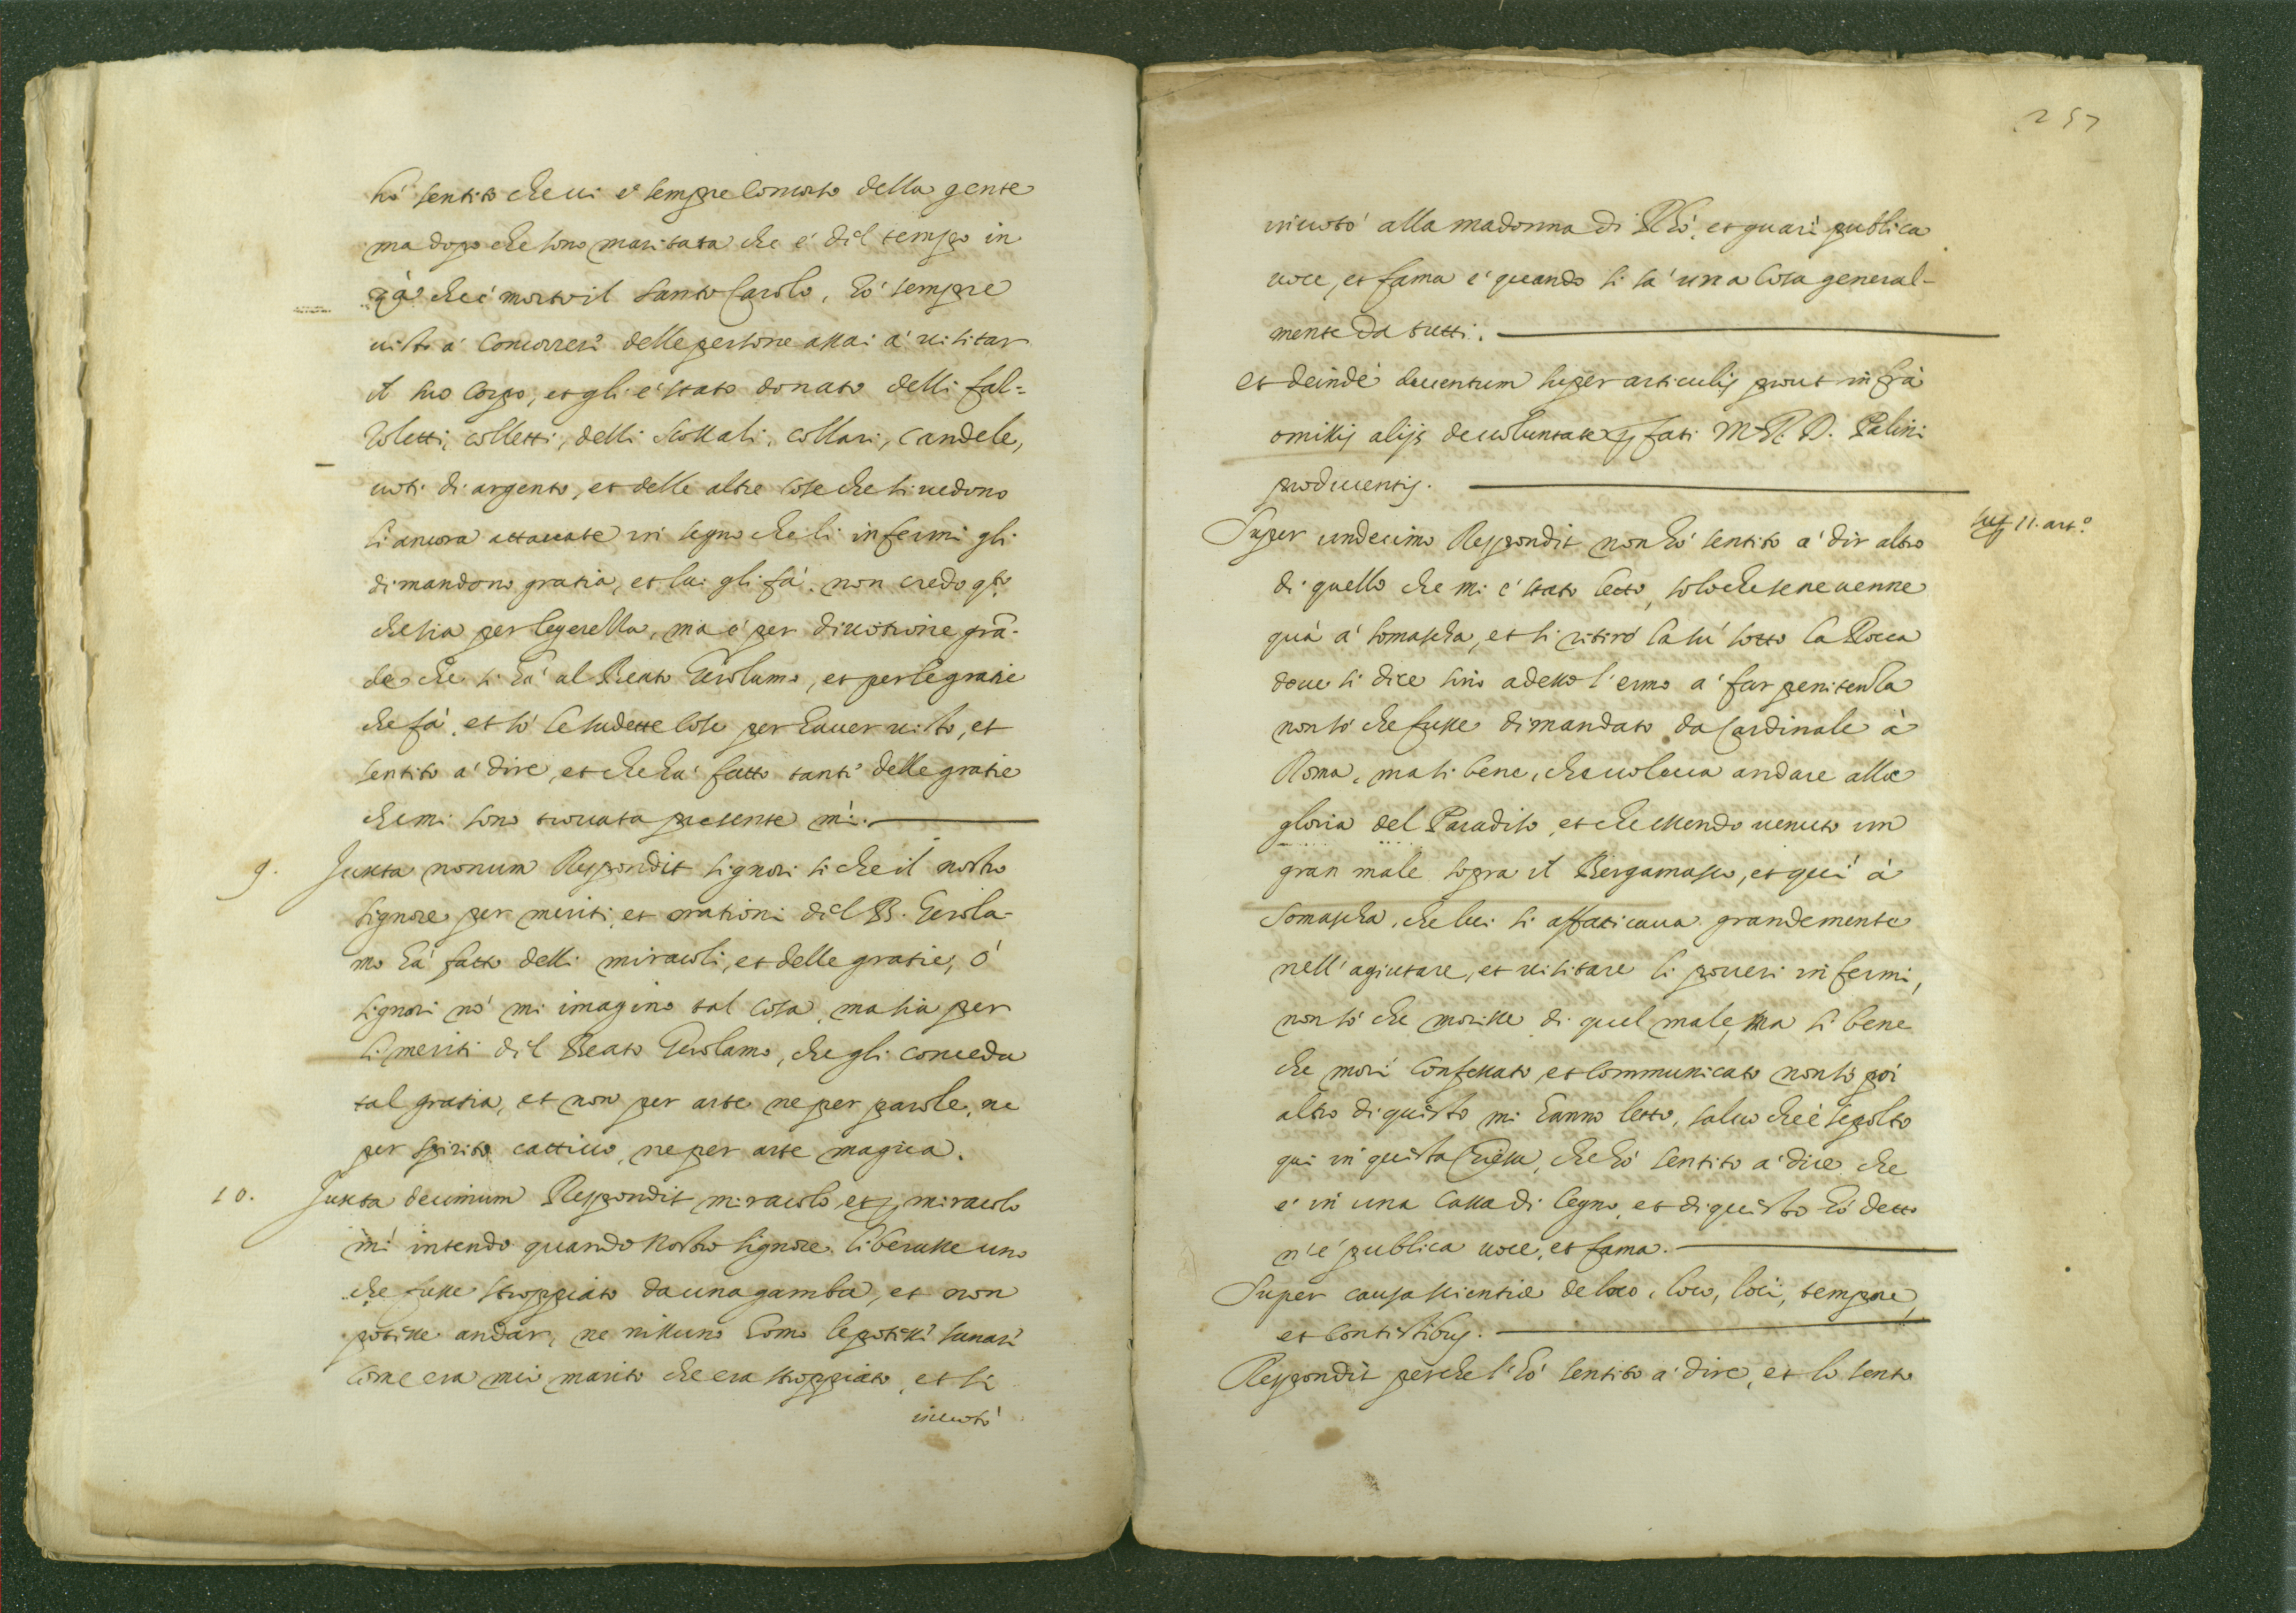 hò sentito che ui è sempre concorso della gente
ma dopo che sono maritata che è dil tempo in
quà che è morto il santo Carolo, hò sempre
uisto à concorrerè delle persone assai à uisitar
il suo corpo, et gli è stato donato delli fal=
zoletti, colletti, delli scossali, collari, candele,
uoti di argento, et delle altre cose che si uedono
lì ancora attaccate in segno che li infermi gli
dimandono gratia, et lui gli fà, non credo qto
che sia per legerezza, ma è per diuotione grā-
de che si hà al Beato Gerolamo, et per le gratie
che fà, et sò le sudette cose per hauer uisto, et
sentito à dire, et che hà fatto tanti delle gratie
che mi sono trouata presente mì.
9. Juxta nonum Respondit signori si che il nostro
signore per meriti, et orationi dil B. Gerola-
mo hà fatto delli miracoli, et delle gratie, ò
signori nò mi imagino tal cosa, ma sia per
li meriti dil Beato Gerolamo, che gli conceda
tal gratia, et non per arte ne per parole, ne
per spirito cattiuo, ne per arte magica.
10. Juxta decimum Respondit miracolo, et p miracolo
mì intendo quando nostro signore liberasse uno
che fusse stroppiato da una gamba, et non
potesse andar, ne nissuno homo le potessi sanarì
come era mio marito che era stroppiato, et si
inuotò
257
inuotò alla madonna di Rhò, et quasi publica
uoce, et fama è quando si sà una cosa general-
mente da tutti.
et deinde deuentum super articulis prout infrà
omissis alijs de uoluntate pfati M. R. D. Palini
producentis.
sup 11. art.o
Super undecimo Respondit non hò sentito à dir altro
di quello che mi è stato letto, solo che se ne uenne
quà à somascha, et si ritirò la sù sotto la Rocca
doue si dice sino adesso l'ermo à far penitenza
non sò che fusse dimandato da Cardinale à
Roma, ma si bene, che uoleua andare alla
gloria del Paradiso, et che essendo uenuto un
gran male sopra il Bergamasco, et qui à
Somascha, che lui si affaticaua grandemente
nell'agiutare, et uisitare li poueri infermi,
non sò che morisse di quel male, ma si bene
che morì confessato, et communicato non sò poi
altro di quisto mi hanno letto, saluo che è sepolto
qui in quista Chiesa, che hò sentito à dire che
è in una cassa di legno, et di quisto hò detto
n'è publica uoce, et fama.
Super causa scientiæ de loco, loco, loci, tempore,
et contestibus.
Respondit perche l'hò sentito à dire, et lo sento